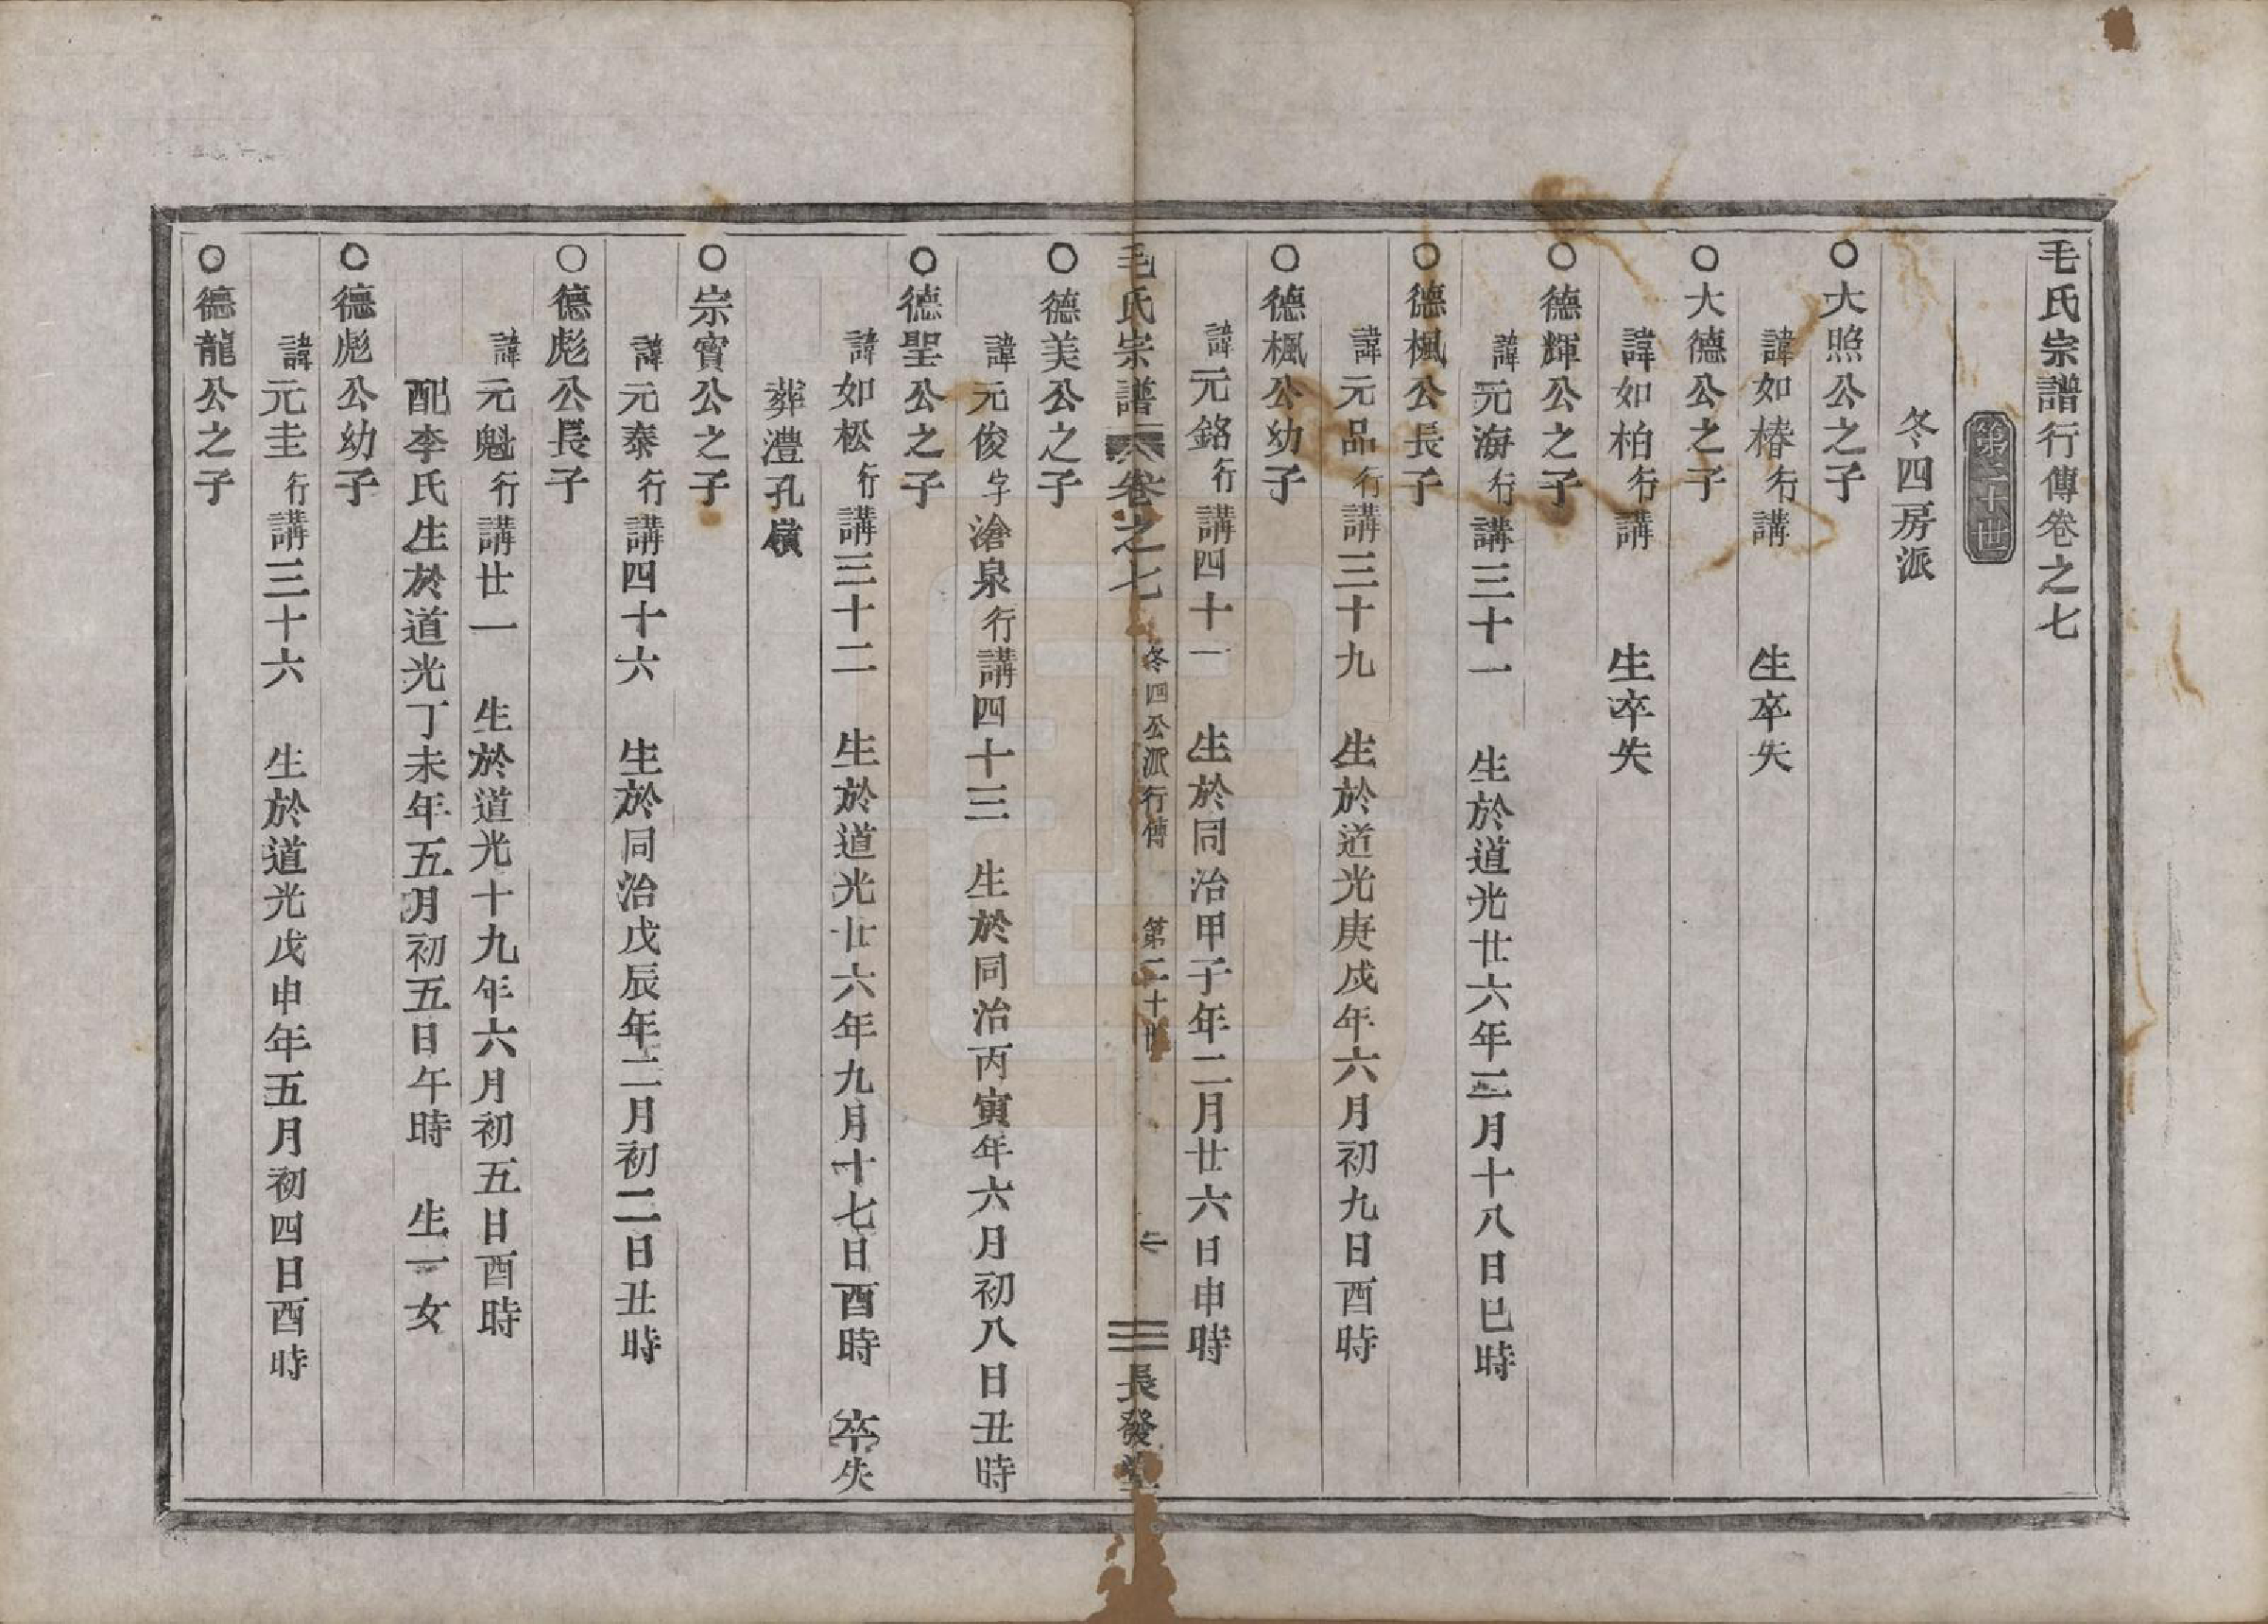 毛氏宗譜行傳卷之七
第二十世
冬四房派
○大照公之子
諱如椿行講 生卒失
○大德公之子
諱如柏行講 生卒失
○德輝公之子
諱元海行講三十一 生於道光廿六年三月十八日巳時
○德楓公長子
諱元品行講三十九 生於道光庚戌年六月初九日酉時
○德楓公幼子
諱元銘行講四十一 生於同治甲子年二月廿六日申時
毛氏宗譜 卷之七 冬四公派行傳 第二十世 一 長發堂
○德美公之子
諱元俊字滄泉行講四十三 生於同治丙寅年六月初八日丑時
○德聖公之子
諱如松行講三十二 生於道光廿六年九月十七日酉時 卒失
葬灃孔嶺
○宗寳公之子
諱元泰行講四十六 生於同治戊辰年二月初二日丑時
○德彪公長子
諱元魁行講廿一 生於道光十九年六月初五日酉時
配李氏生於道光丁未年五月初五日午時 生一女
○德彪公幼子
諱元圭行講三十六 生於道光戊申年五月初四日酉時
○德龍公之子